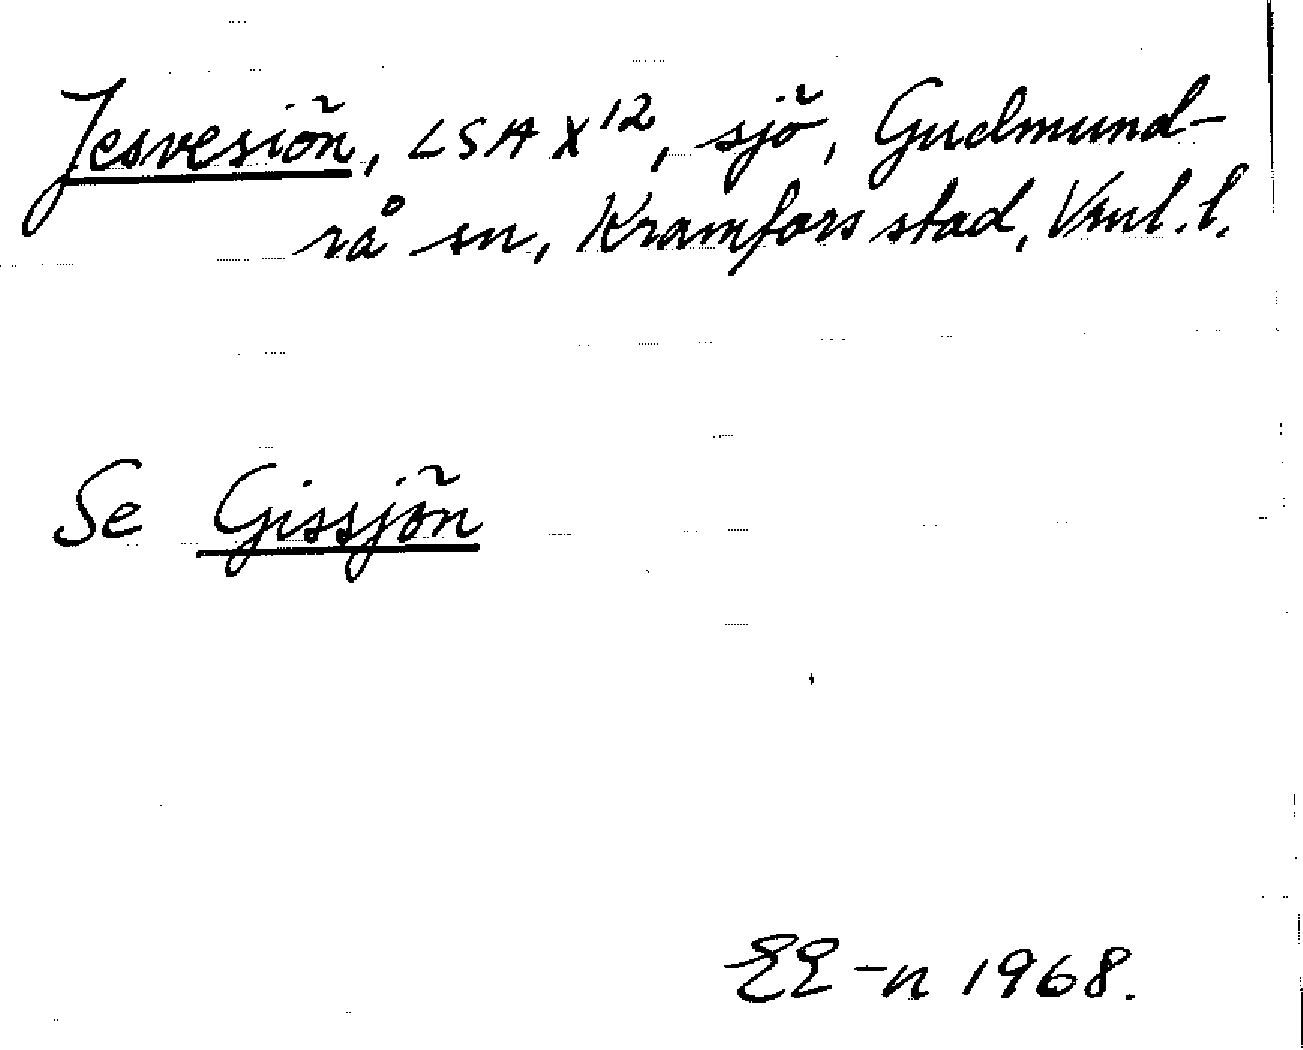 Jesvesiön, LSA X12, sjö, Gudmund-
rå sn, Kramfors stad, Vnl. l.
Se Gissjön
EE-n 1968.